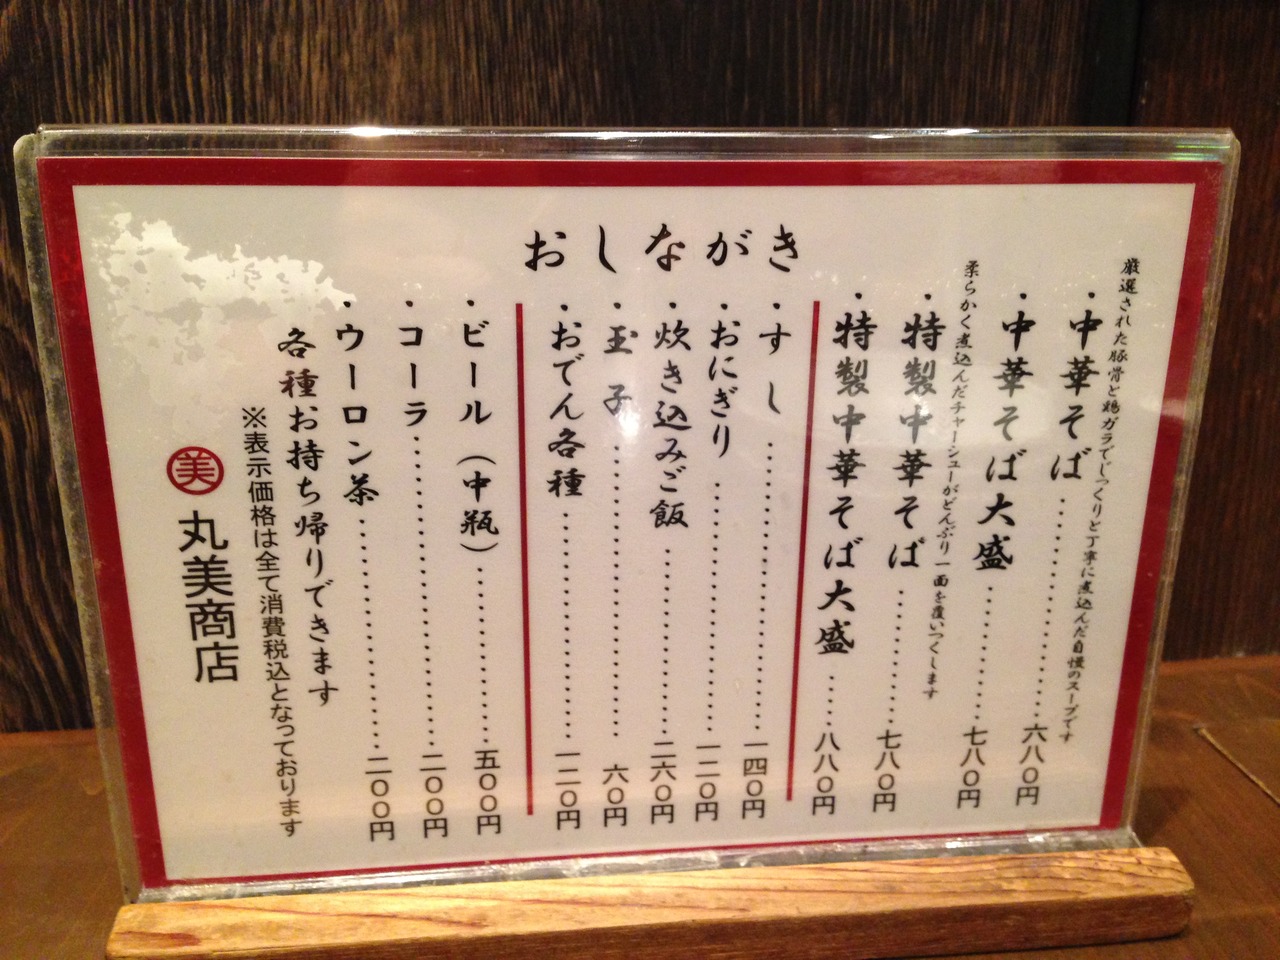 おしながき
厳選された豚骨と鶏ガラでじっくりと丁寧に煮込んだ自慢のスープです
・中華そば…………六八〇円
・中華そば大盛…………七八〇円
柔らかく煮込んだチャーシューがどんぶり一面を覆いつくします
・特製中華そば…………七八〇円
・特製中華そば大盛……八八〇円
・すし…………一四〇円
・おにぎり…………一二〇円
・炊き込みご飯…………二六〇円
・玉子…………六〇円
・おでん各種…………一二〇円
・ビール（中瓶）…………五〇〇円
・コーラ…………二〇〇円
・ウーロン茶…………二〇〇円
各種お持ち帰りできます
※表示価格は全て消費税込となっております
美 丸美商店